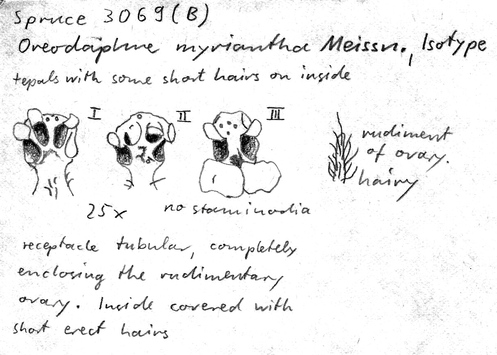 Spruce 3069 (B)
Oreodaphne myriantha Meissn., Isotype
tepals with some short hairs on inside
I II III
rudiment
of ovary.
hairy
25x no staminodia
receptacle tubular, completely
enclosing the rudimentary
ovary. Inside covered with
short erect hairs